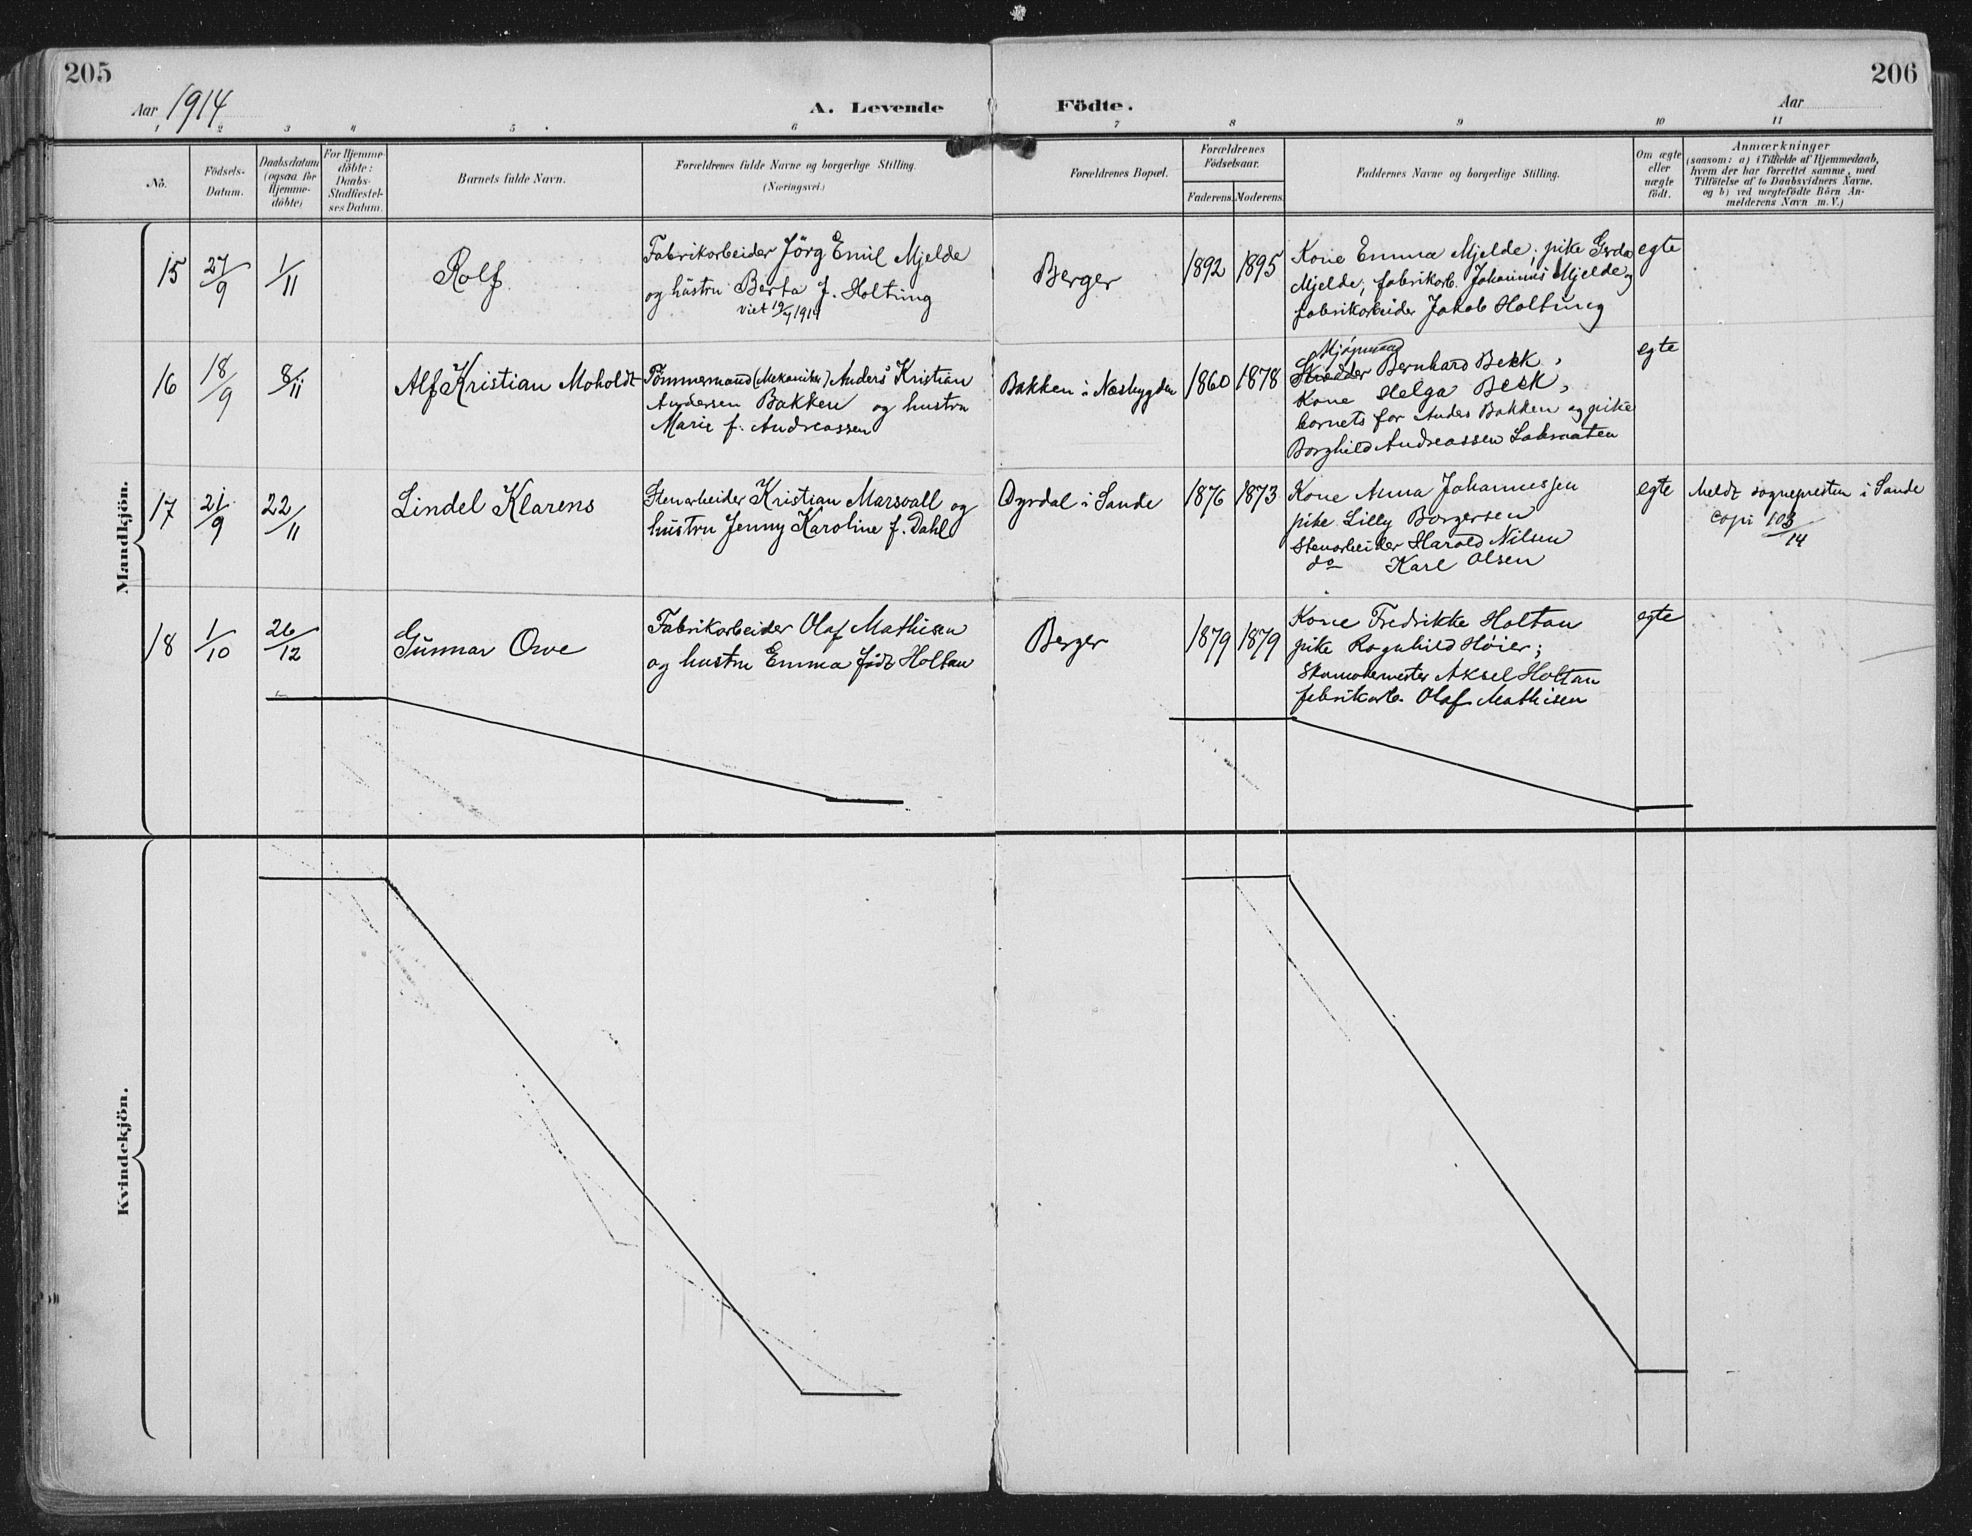 205
206
Aar 1914
A. Levende
Födte.
Aar
1 2 3 4 5 6 7 8 9 10 11
No.
Födsels-
Datum.
Daabsdatum
(ogsaa for
Hjemme-
döbte)
For Hjemme-
döbte:
Daabs-
Stadfæstel-
ses Datum.
Barnets fulde Navn.
Forældrenes fulde Navne og borgerlige Stilling.
(Næringsvei.)
Forældrenes Bopæl.
Forældrenes
Födselsaar.
Faderens. Moderens.
Faddernes Navne og borgerlige Stilling.
Om ægte
eller
uægte
födt.
Anmærkninger
(saasom: a) i Tilfælde af Hjemmedaab,
hvem der har forrettet samme, med
Tilföielse af to Daabsvidners Navne.
og b) ved uægtefödte Börn An-
melderens Navn m. V.)
Mandkjön.
15
27/9
1/11
Rolf
Fabrikarbeider Jörg Emil Mjelde
og hustru Berta f. Holtung
viet 19/4 1914
Berger
1892
1895
Kone Emma Mjelde; pike Gerda
Mjelde; fabrikarb. Johannes Mjelde og
fabrikarbeider Jakob Holtung
egte
16
18/9
8/11
Alf Kristian Moholdt
Tömmermand (Mekaniker) Anders Kristian
Andersen Bakken og hustru
Marie f. Andreassen
Bakken i Nesbygden
1860
1878
Skrædder Bernhard Bekk,
Kone Helga Bekk,
barnets far Anders Bakken og pike
Borghild Andreassen
egte
17
21/9
22/11
Lindel Klarens
Stenarbeider Kristian Marsvall og
hustru Jenny Karoline f. Dahl
Dyrdal i Sande
1876
1873
Kone Anna Johannessen
pike Lilly Borgersen
Stenarbeider Harald Nilsen
do Karl Olsen
egte
Meldt sognepresten i Sande
copi 103/14
18
1/10
26/12
Gunnar Owe
Fabrikarbeider Olaf Mathisen
og hustru Emma født Holtan
Berger
1879
1879
Kone Fredrikke Holtan
pike Ragnhild Høier;
Skomakermester Aksel Holtan
fabrikarb. Olaf Mathisen
egte
Kvindekjön.